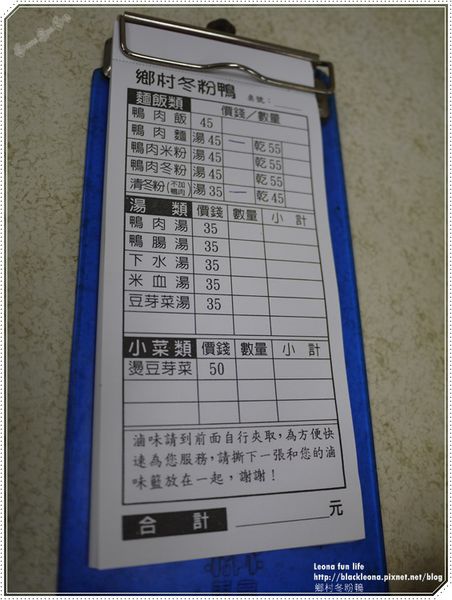 鄉村冬粉鴨 桌號：
麵飯類 價錢／數量
鴨肉飯 45
鴨肉麵 湯45 乾55
鴨肉米粉 湯45 乾55
鴨肉冬粉 湯45 乾55
清冬粉(不加鴨肉) 湯35 乾45
湯類 價錢 數量 小計
鴨肉湯 35
鴨腸湯 35
下水湯 35
米血湯 35
豆芽菜湯 35
小菜類 價錢 數量 小計
燙豆芽菜 50
滷味請到前面自行夾取，為方便快
速為您服務，請撕下一張和您的滷
味籃放在一起，謝謝！
合計 元
Leona fun life
http://blackleona.pixnet.net/blog
鄉村冬粉鴨